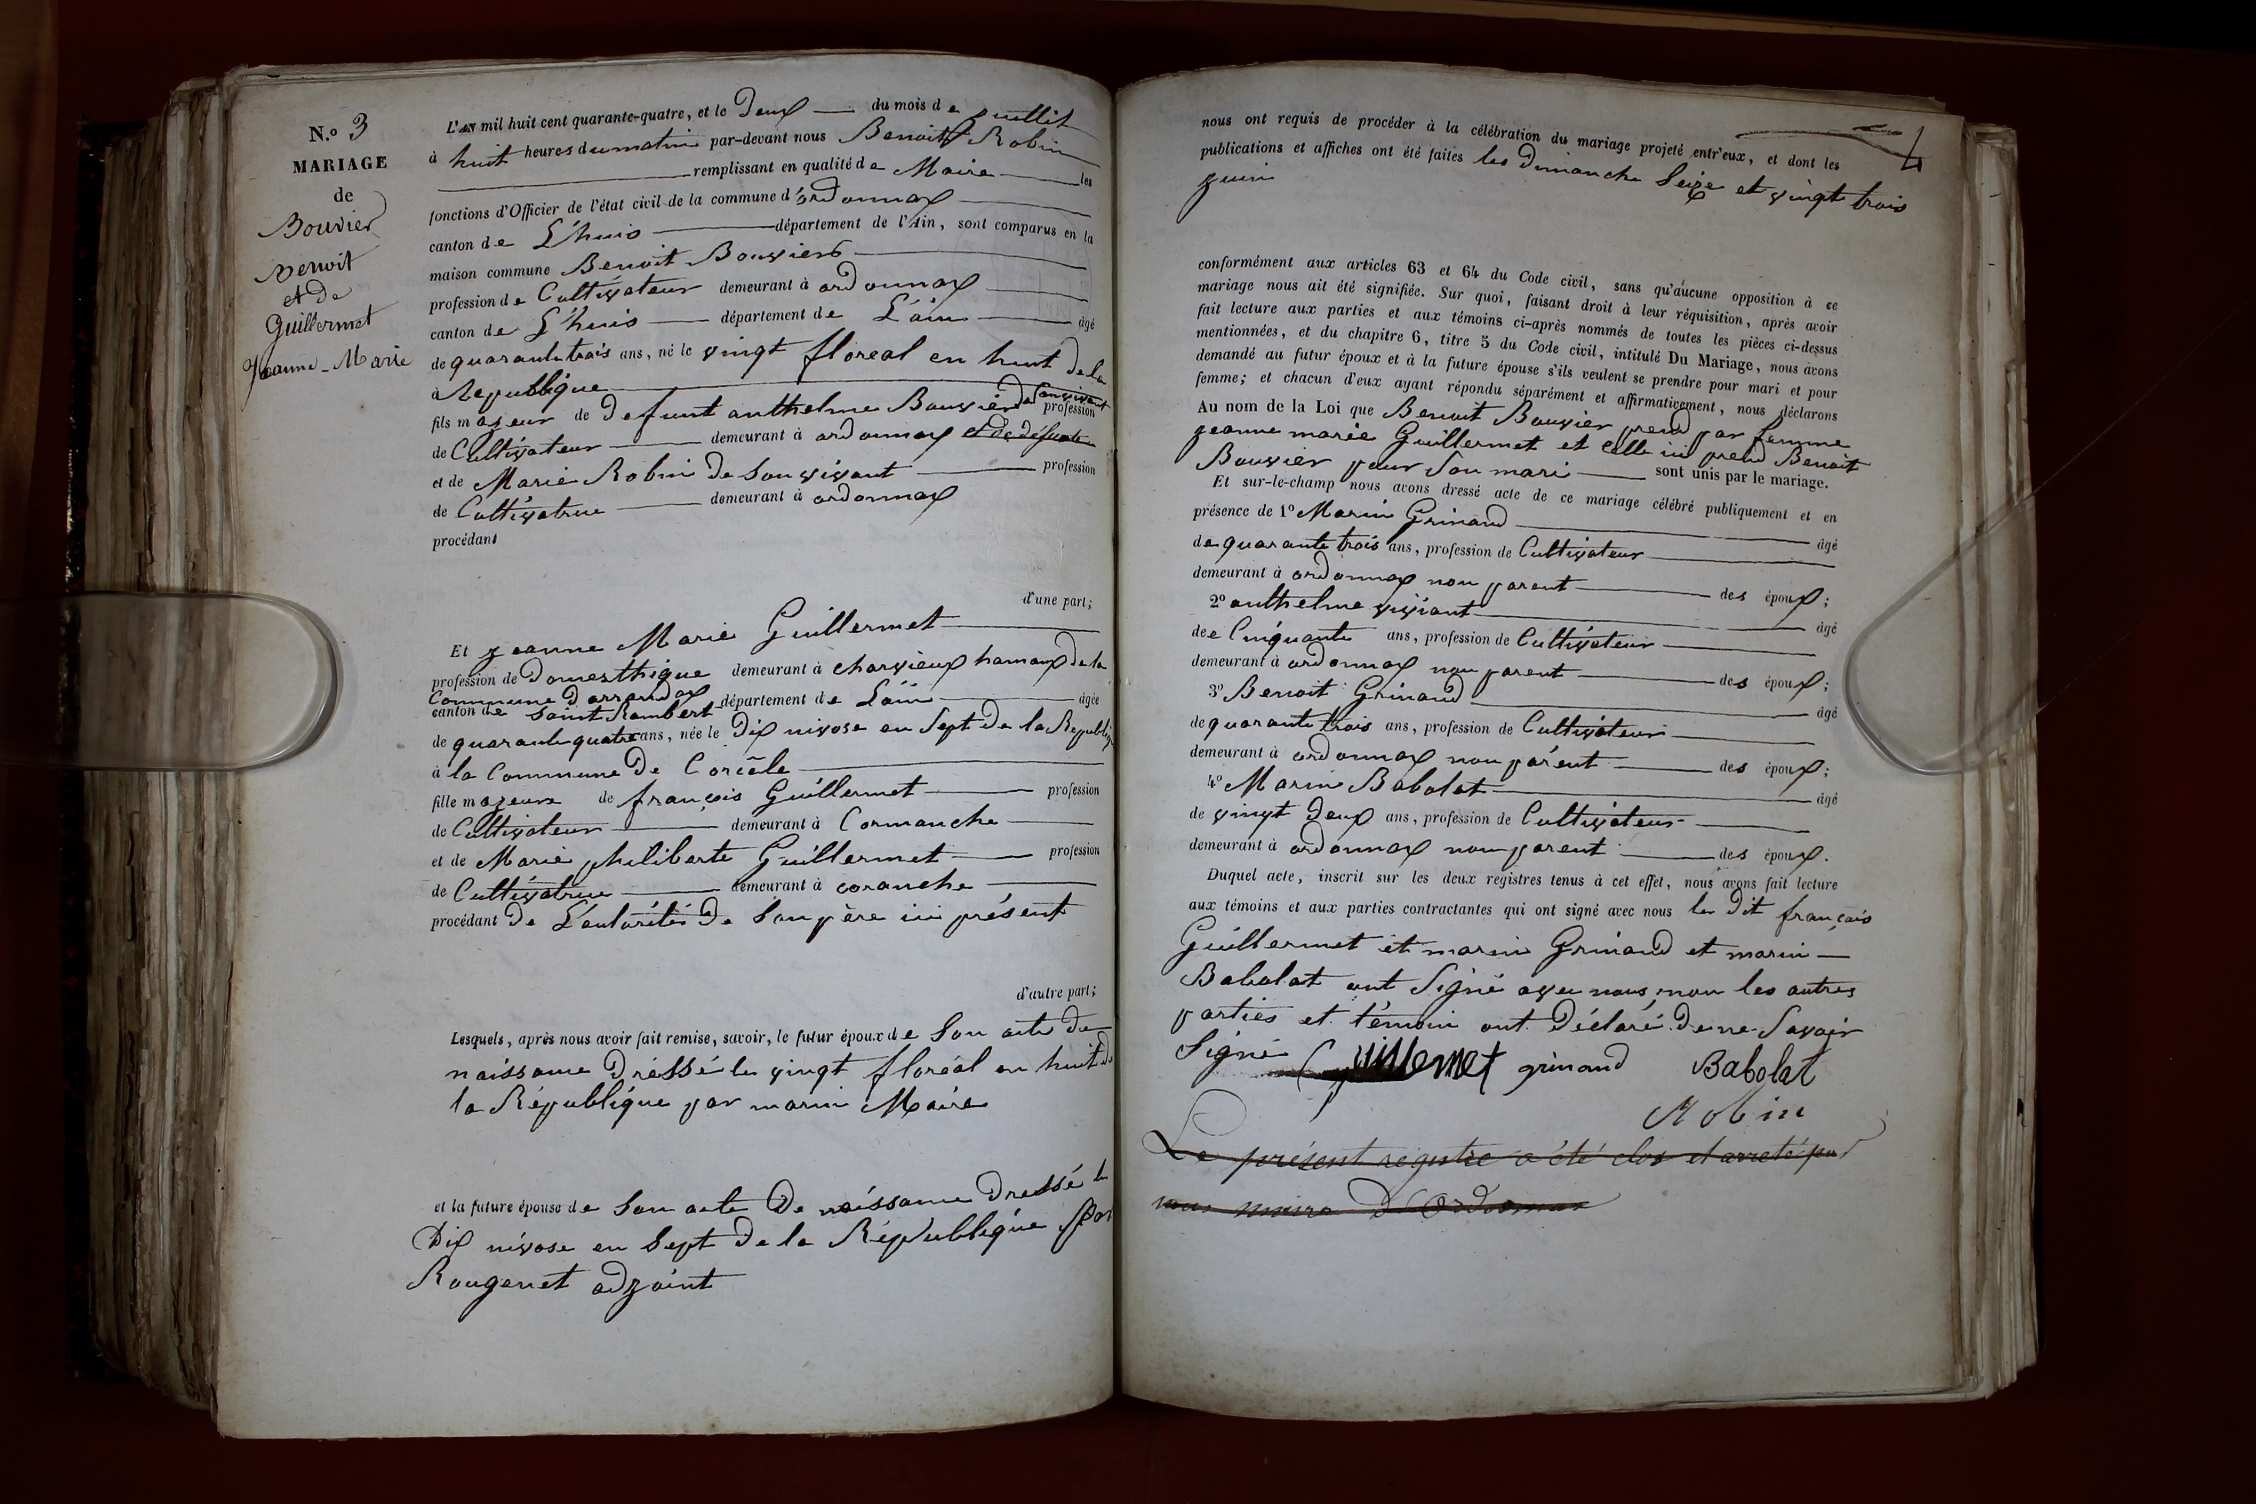 N.º 3
MARIAGE
de
Bouvier
Benoit
et de
Guillermet
Jeanne-Marie
L'AN mil huit cent quarante-quatre, et le Deux du mois de juillet
à huit heures du matin par-devant nous Benoit Robin
remplissant en qualité de Maire les
fonctions d'Officier de l'état civil de la commune d'ordonnax
canton de L'huis département de l'Ain, sont comparus en la
maison commune Benoit Bouvier
profession de Cultivateur demeurant à ordonnax
canton de L'huis département de L'ain âgé
de quarante trois ans, né le vingt floreal en huit de la
à Republique
fils majeur de defunt anthelme Bouvier De Sonvivant profession
de Cultivateur demeurant à ordonnax et de défunte
et de Marie Robin De Sonvivant profession
de Cultivatrice demeurant à ordonnax
procédant
d'une part;
Et jeanne Marie Guillermet
profession de Domesthique demeurant à charvieux hamaux de la
Commune D'arrandax
canton de Saint Rambert département de L'ain âgée
de quarante quatre ans, née le Dix nivose en Sept De la Republique
à la Commune De Corcéle
fille majeure de françois Guillermet profession
de Cultivateur demeurant à Cormanche
et de Marie philiberte Guillermet profession
de Cultivatrice demeurant à coranche
procédant De L'autorités De Son père ici présent
d'autre part;
Lesquels, après nous avoir fait remise, savoir, le futur époux de Son acte de
naissance Dréssé le vingt floréal en huit de
la République par marin Maire
et la future épouse de Son acte De naissance Dressé le
Dix nivose en Sept De la République par
Rougenet adjoint
4
nous ont requis de procéder à la célébration du mariage projeté entr'eux, et dont les
publications et affiches ont été faites les Dimanche Seize et vingt trois
juin
conformément aux articles 63 et 64 du Code civil, sans qu'aucune opposition à ce
mariage nous ait été signifiée. Sur quoi, faisant droit à leur réquisition, après avoir
fait lecture aux parties et aux témoins ci-après nommés de toutes les pièces ci-dessus
mentionnées, et du chapitre 6, titre 5 du Code civil, intitulé Du Mariage, nous avons
demandé au futur époux et à la future épouse s'ils veulent se prendre pour mari et pour
femme; et chacun d'eux ayant répondu séparément et affirmativement, nous déclarons
Au nom de la Loi que Benoit Bouvier prend par femme
jeanne marie Guillermet et Celle ici prend Benoit
Bouvier pour Son mari sont unis par le mariage.
Et sur-le-champ nous avons dressé acte de ce mariage célébré publiquement et en
présence de 1º Marin Grinand âgé
de quarante trois ans, profession de Cultivateur
demeurant à ordonnax non parent des époux;
2º anthelme viviant âgé
dee Cinquante ans, profession de Cultivateur
demeurant à ordonnax non parent des époux;
3º Benoit Grinand âgé
de quarante trois ans, profession de Cultivateur
demeurant à ordonnax non párent des époux;
4º Marin Babolat âgé
de vingt Deux ans, profession de Cultivateur
demeurant à ordonnax non parent des époux.
Duquel acte, inscrit sur les deux registres tenus à cet effet, nous avons fait lecture
aux témoins et aux parties contractantes qui ont signé avec nous les Dit français
Guillermet et marin Grinand et marin
Babalat ont Signé avec nous, non les autres
parties et témoin ont Déclaré De ne Savoir
Signé Guillemet grinand Babolat
Robin
Le présent registre a été clos et arreté par
nous maire D'Ordonnax